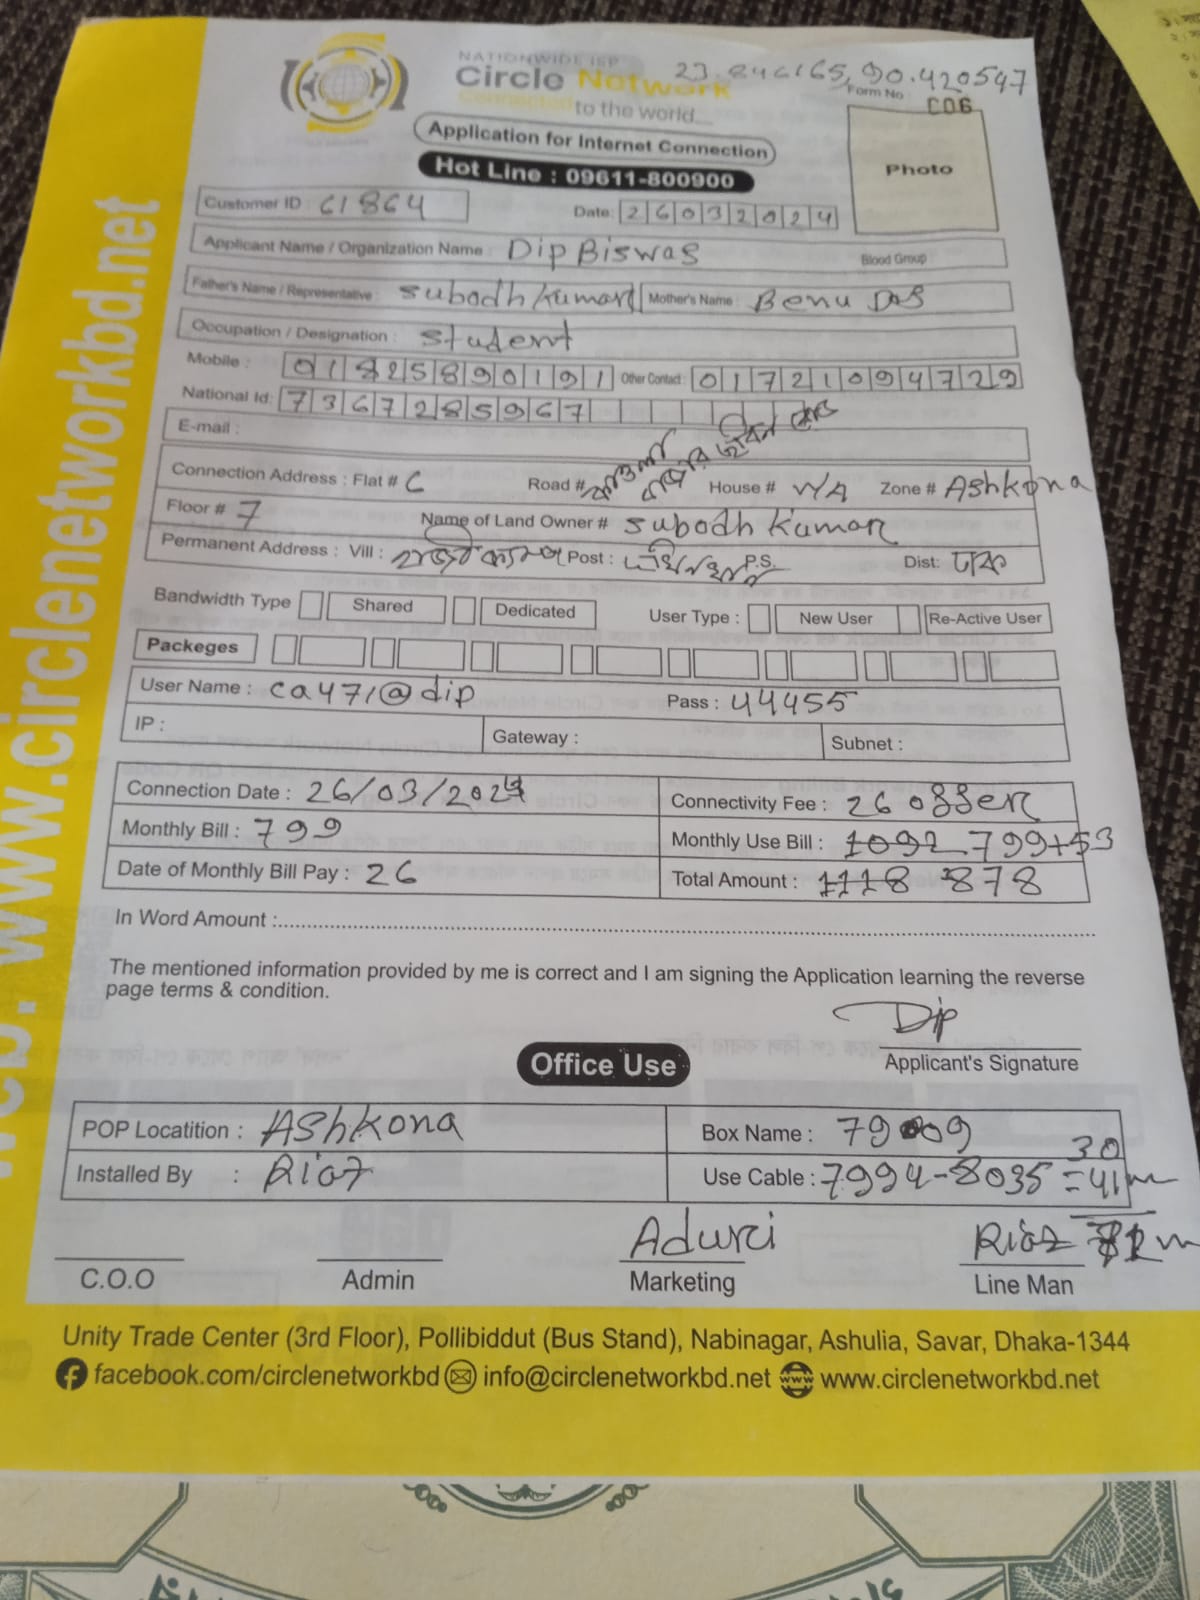 NATIONWIDE ISP
Circle Network 23.846165, 90.420547
Connected to the world...
Form No C06
Application for Internet Connection
Hot Line : 09611-800900
Photo
Customer ID : 61864 Date: 26032024
Applicant Name / Organization Name : Dip Biswas Blood Group
Father's Name / Representative : Subodh Kumar Mother's Name : Benu Das
Occupation / Designation : Student
Mobile : 01825890191 Other Contact : 01721094729
National Id: 7367285967
E-mail :
Connection Address : Flat # C Road # House # N/A Zone # Ashkona
Floor # 7 Name of Land Owner # Subodh Kumar
Permanent Address : Vill : Post : P.S. Dist: ঢাকা
Bandwidth Type Shared Dedicated User Type : New User Re-Active User
Packeges
User Name : ca471@dip Pass : 44455
IP : Gateway : Subnet :
Connection Date : 26/03/2024 Connectivity Fee : 26 offer
Monthly Bill : 799 Monthly Use Bill : 1092 799+53
Date of Monthly Bill Pay : 26 Total Amount : 1118 878
In Word Amount :
The mentioned information provided by me is correct and I am signing the Application learning the reverse
page terms & condition.
Dip
Applicant's Signature
Office Use
POP Locatition : Ashkona Box Name : 79009
Installed By : Riaz Use Cable : 7994-8035 = 41m
30
Aduri Riaz
C.O.O Admin Marketing Line Man
Unity Trade Center (3rd Floor), Pollibiddut (Bus Stand), Nabinagar, Ashulia, Savar, Dhaka-1344
facebook.com/circlenetworkbd info@circlenetworkbd.net www.circlenetworkbd.net
web: www.circlenetworkbd.net